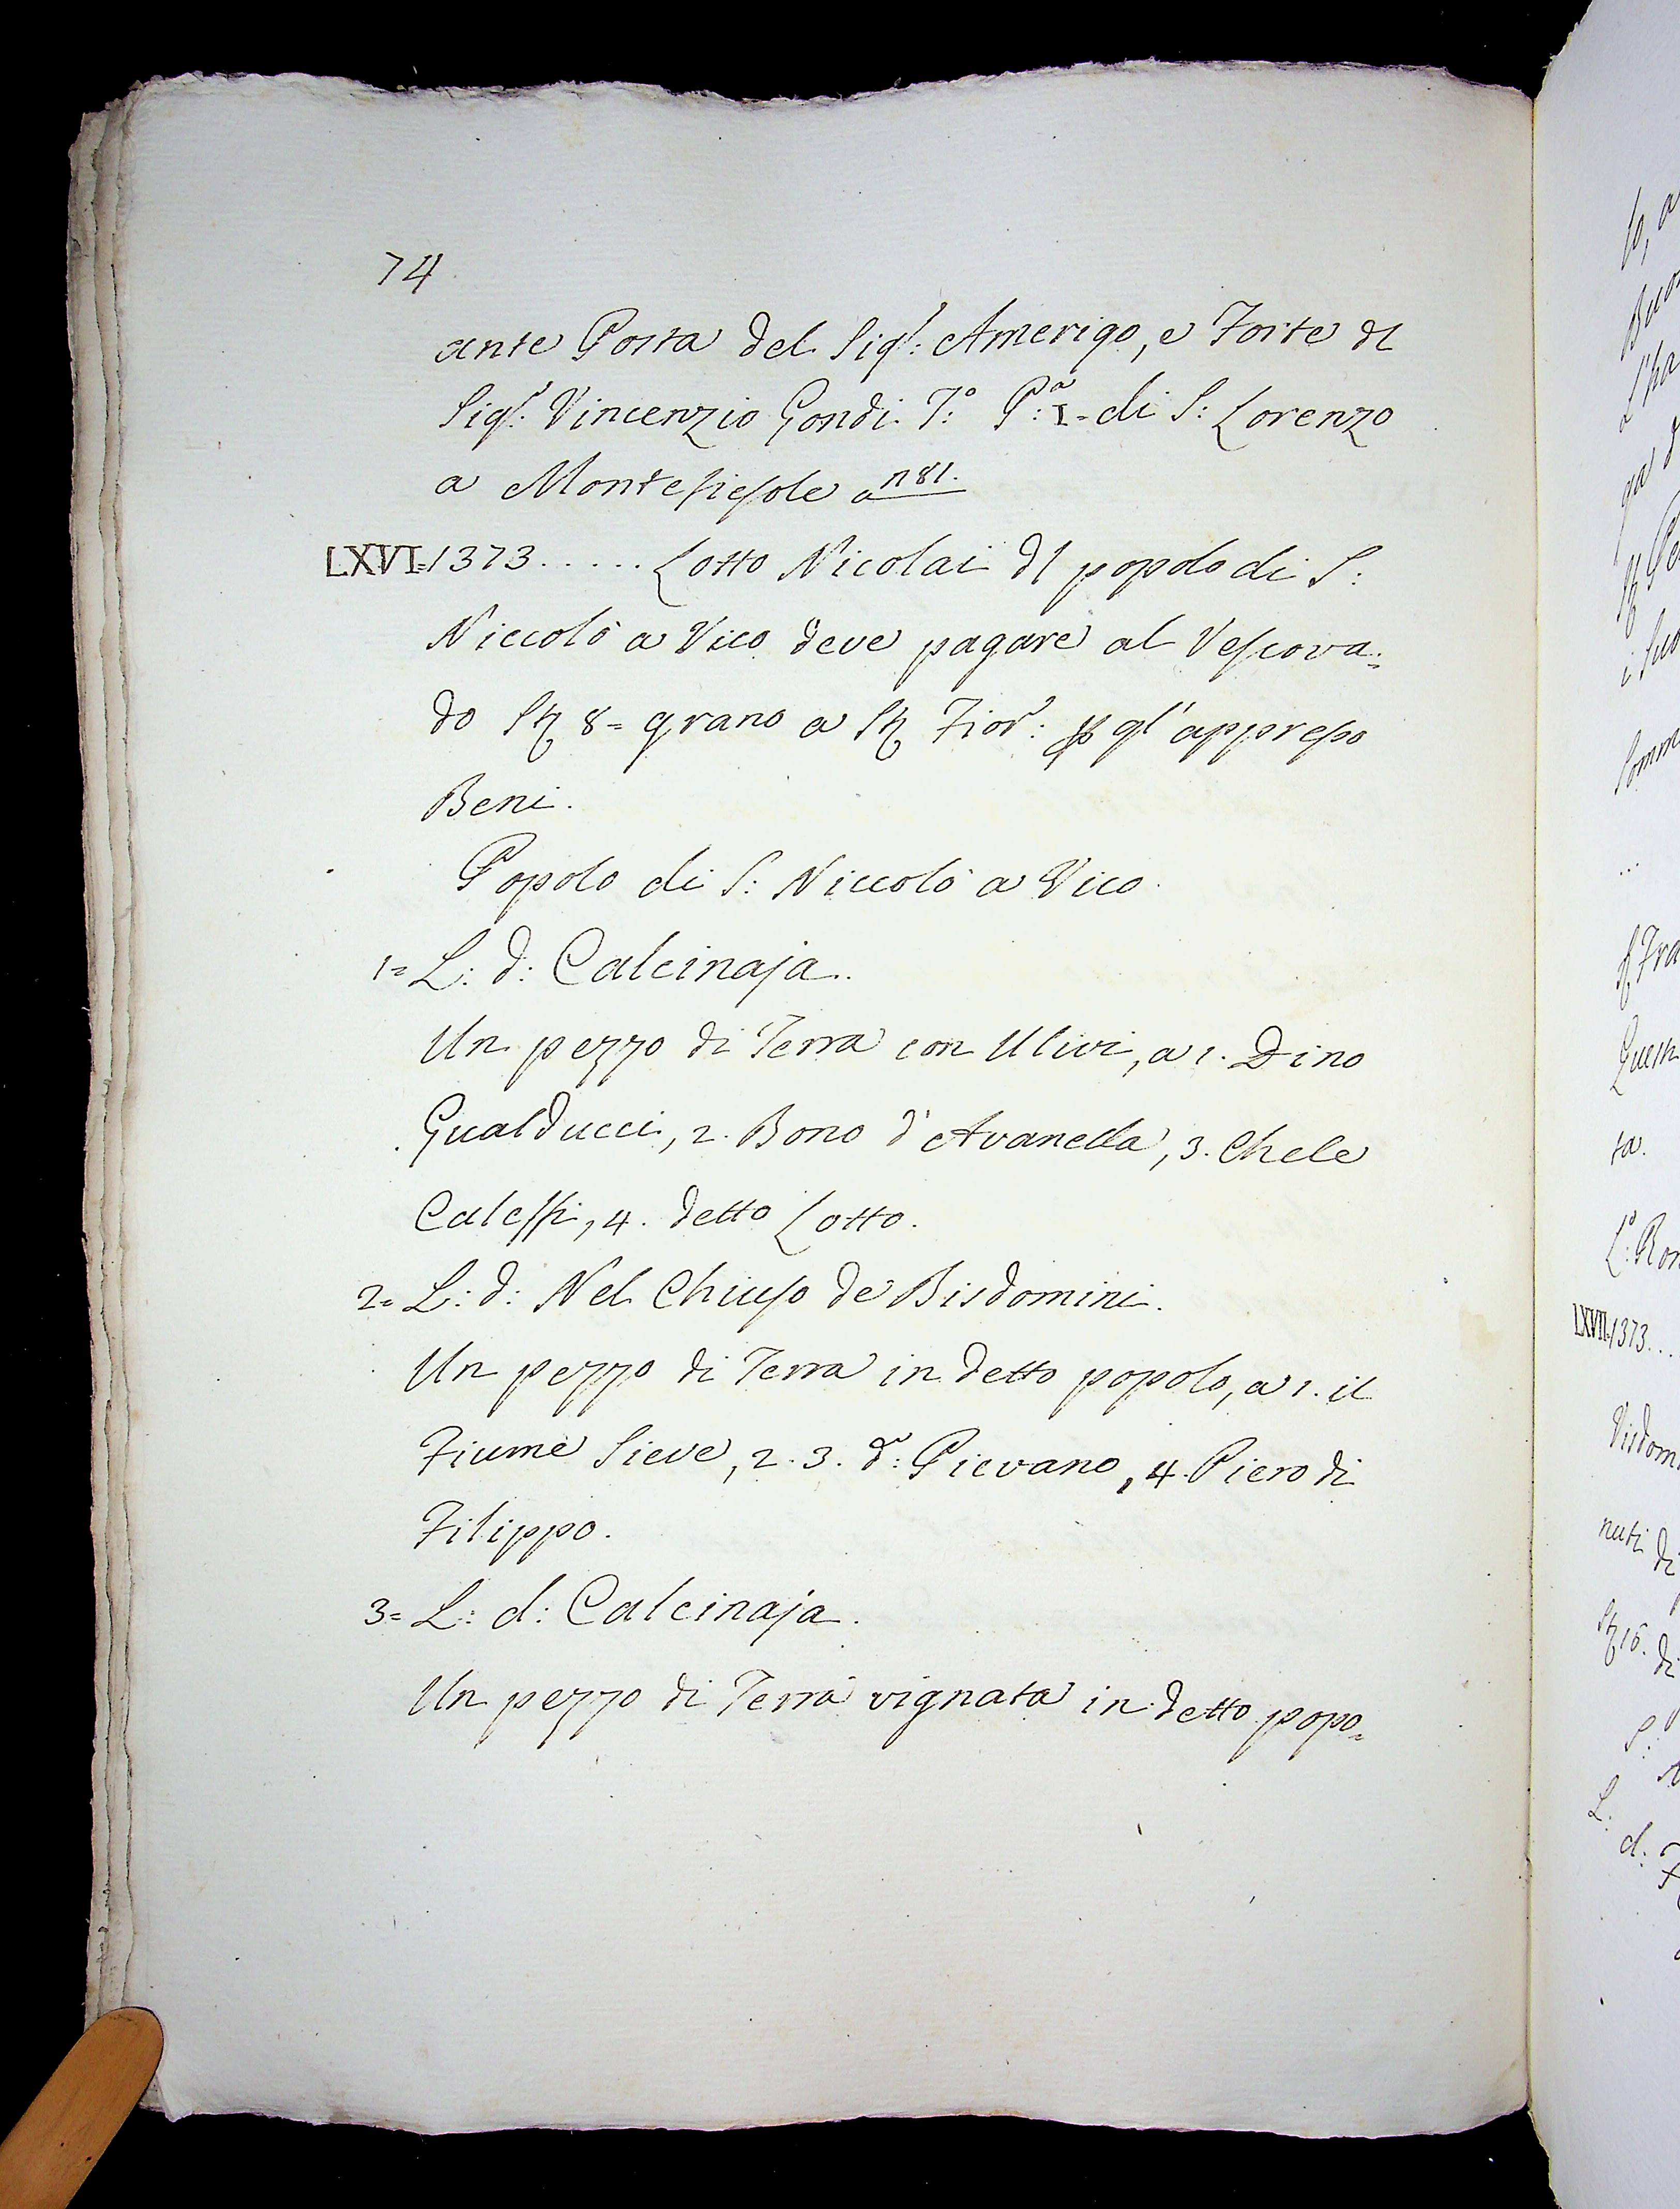 74
ante Posta del Sig.r: Amerigo, e Forte dl
Sig.r: Vincenzio Gondi. T:o P:a I= di S: Lorenzo
a Montefiesole a n 81.
LXVI=1373..... Lotto Nicolai dl popolo di S:
Niccolò a Vico deve pagare al Vescova=
do St 8= grano a St Fior: p gl' appresso
Beni.
Popolo di S: Niccolò a Vico.
1= L: d: Calcinaja.
Un pezzo di Terra con Ulivi, a 1. Dino
Gualducci, 2. Bono d'Avanella, 3. Chele
Calessi, 4. detto Lotto.
2= L: d: Nel Chiuso de Bisdomini.
Un pezzo di Terra in detto popolo, a 1. il
Fiume Sieve, 2. 3. d: Pievano, 4. Piero di
Filippo.
3= L: d: Calcinaja.
Un pezzo di Terra vignata in detto popo=
LXVII=1373...